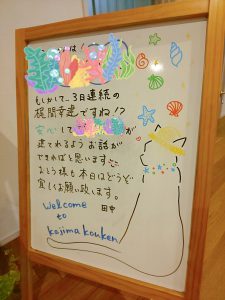 は!
もしかして…3日連続の
梶間幸建ですね!?
安心して
が
建てれるよう お話が
できればと思います
おしろ様も本日はどうぞ
宜しくお願い致します。
Welcome 田中
to
kajima kouken